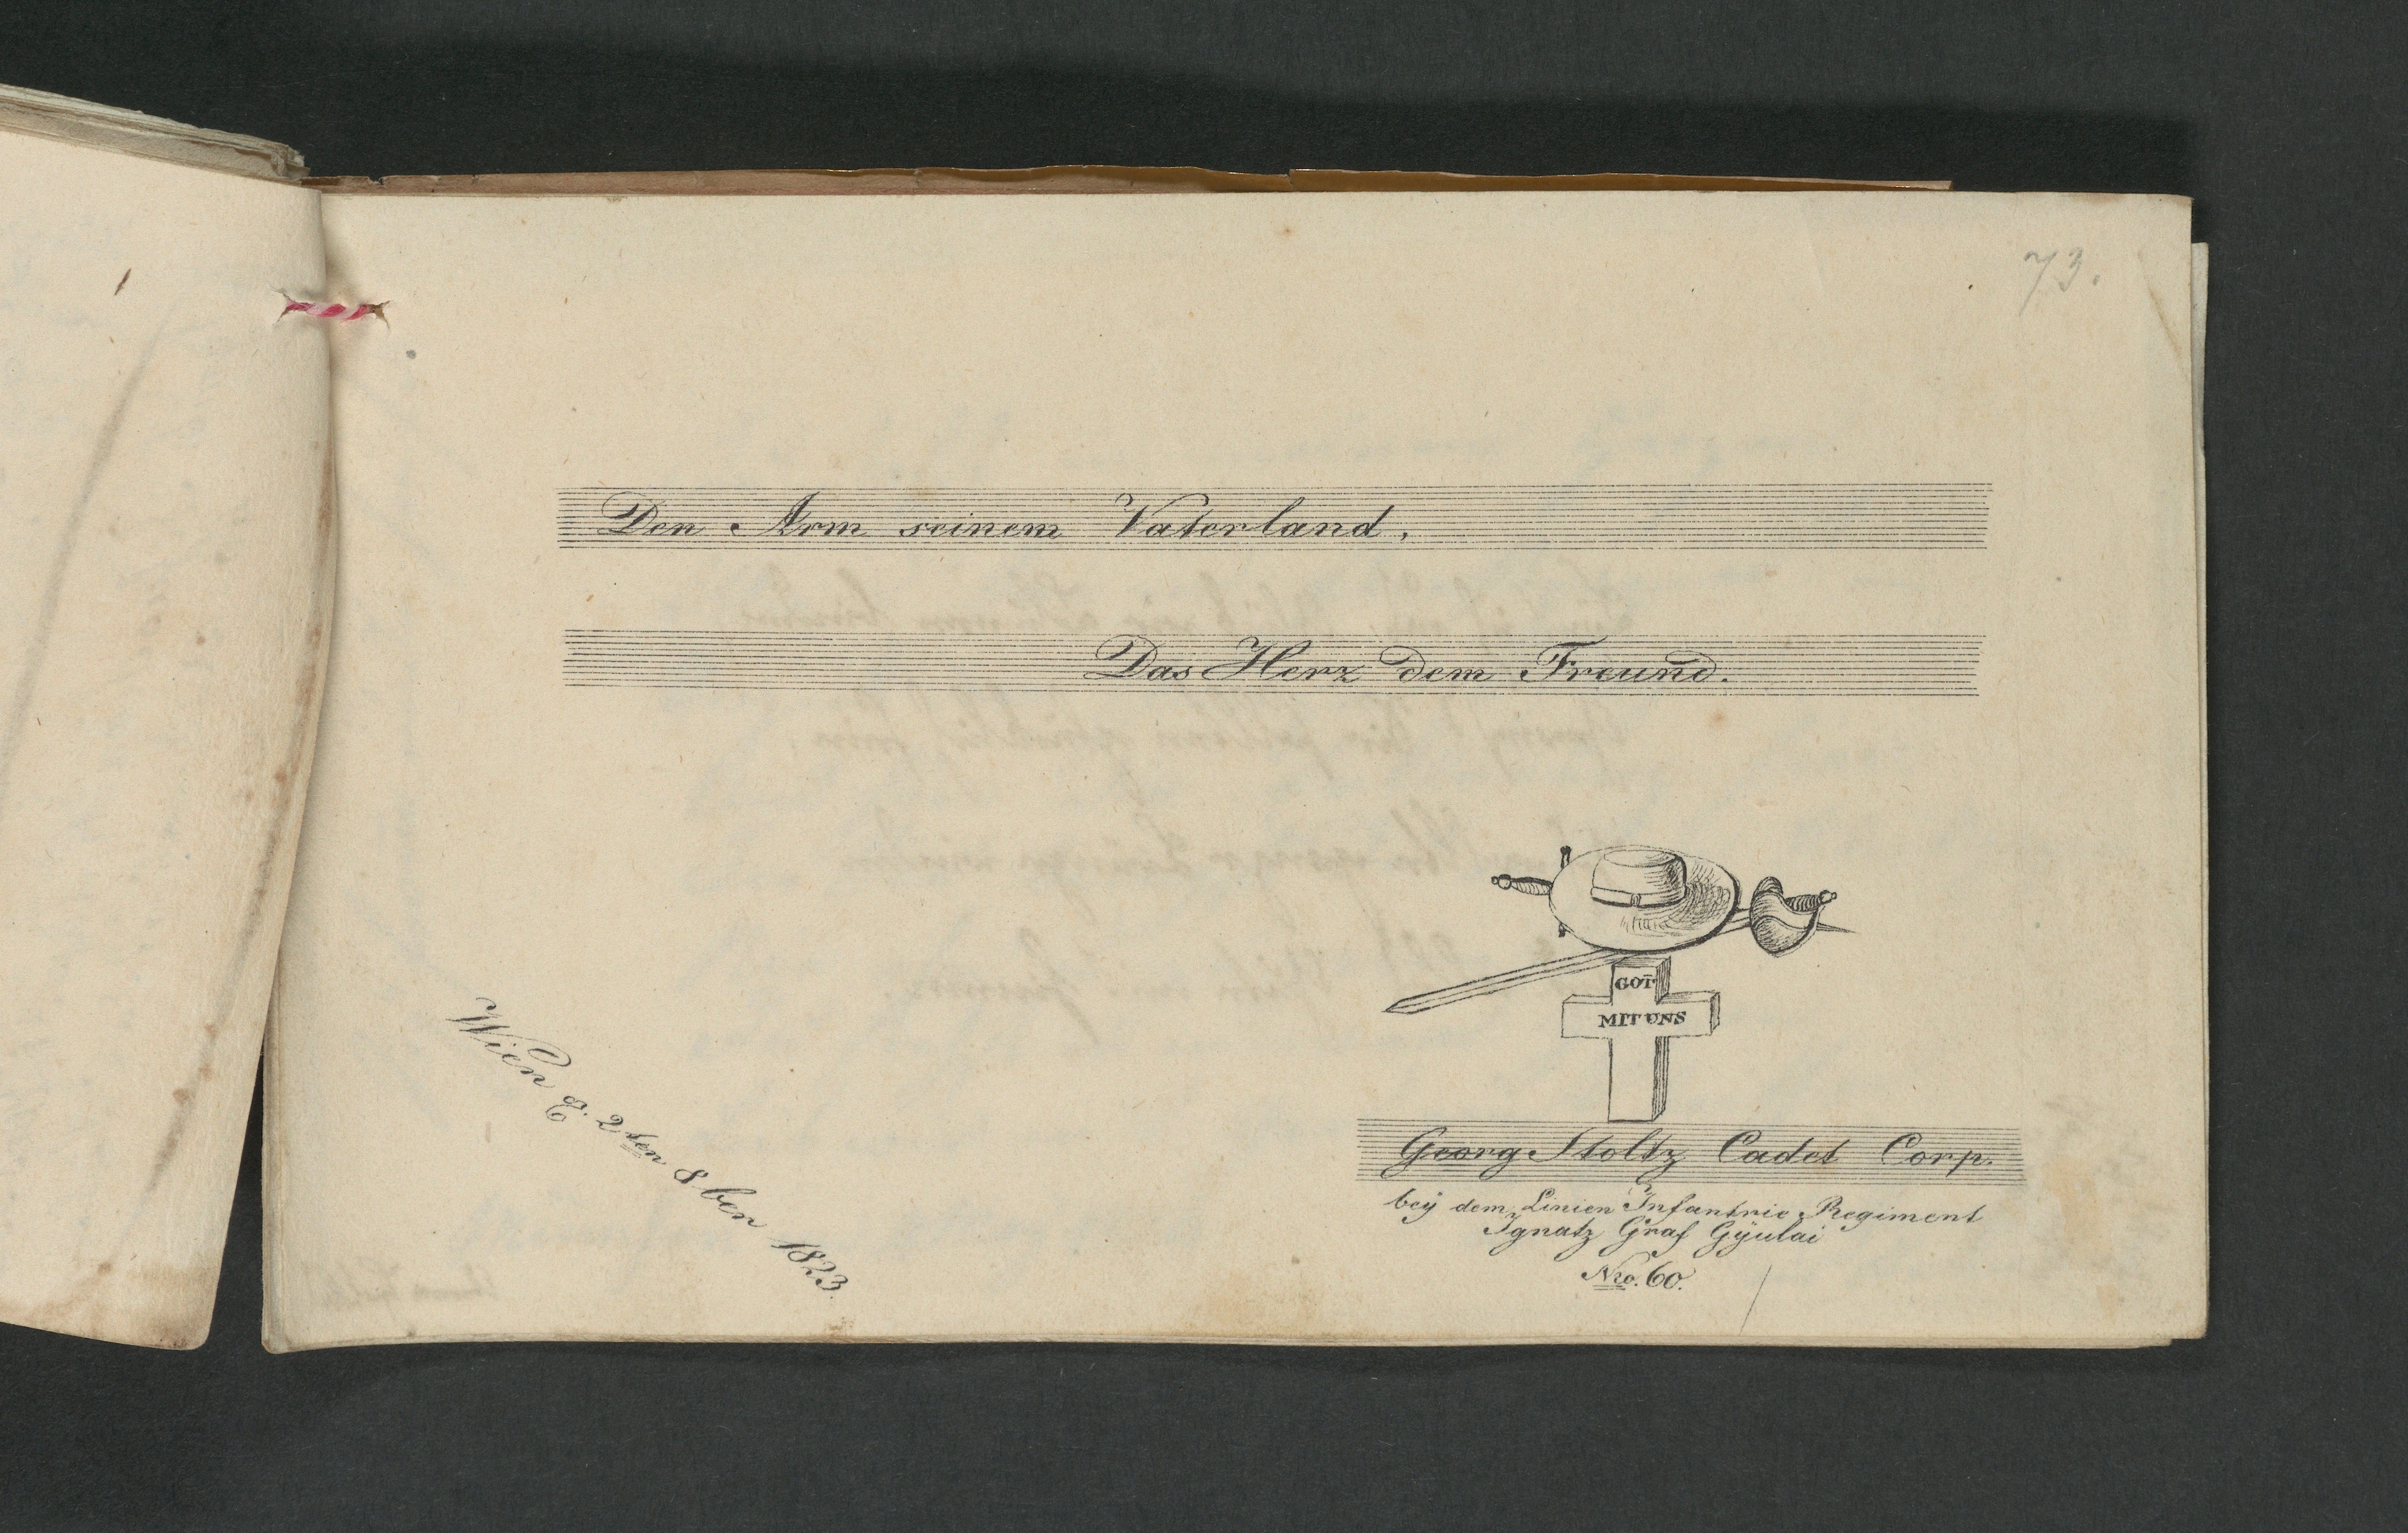 73.
Den Arm seinem Vaterland,
Das Herz dem Freund.
GOT̄
MIT UNS
Wien 2ten 8ber 1823.
Georg Stoltz Cadet Corp.
bey dem Linien Infantrie Regiment
Ignatz Graf Gÿulai
Nro. 60.